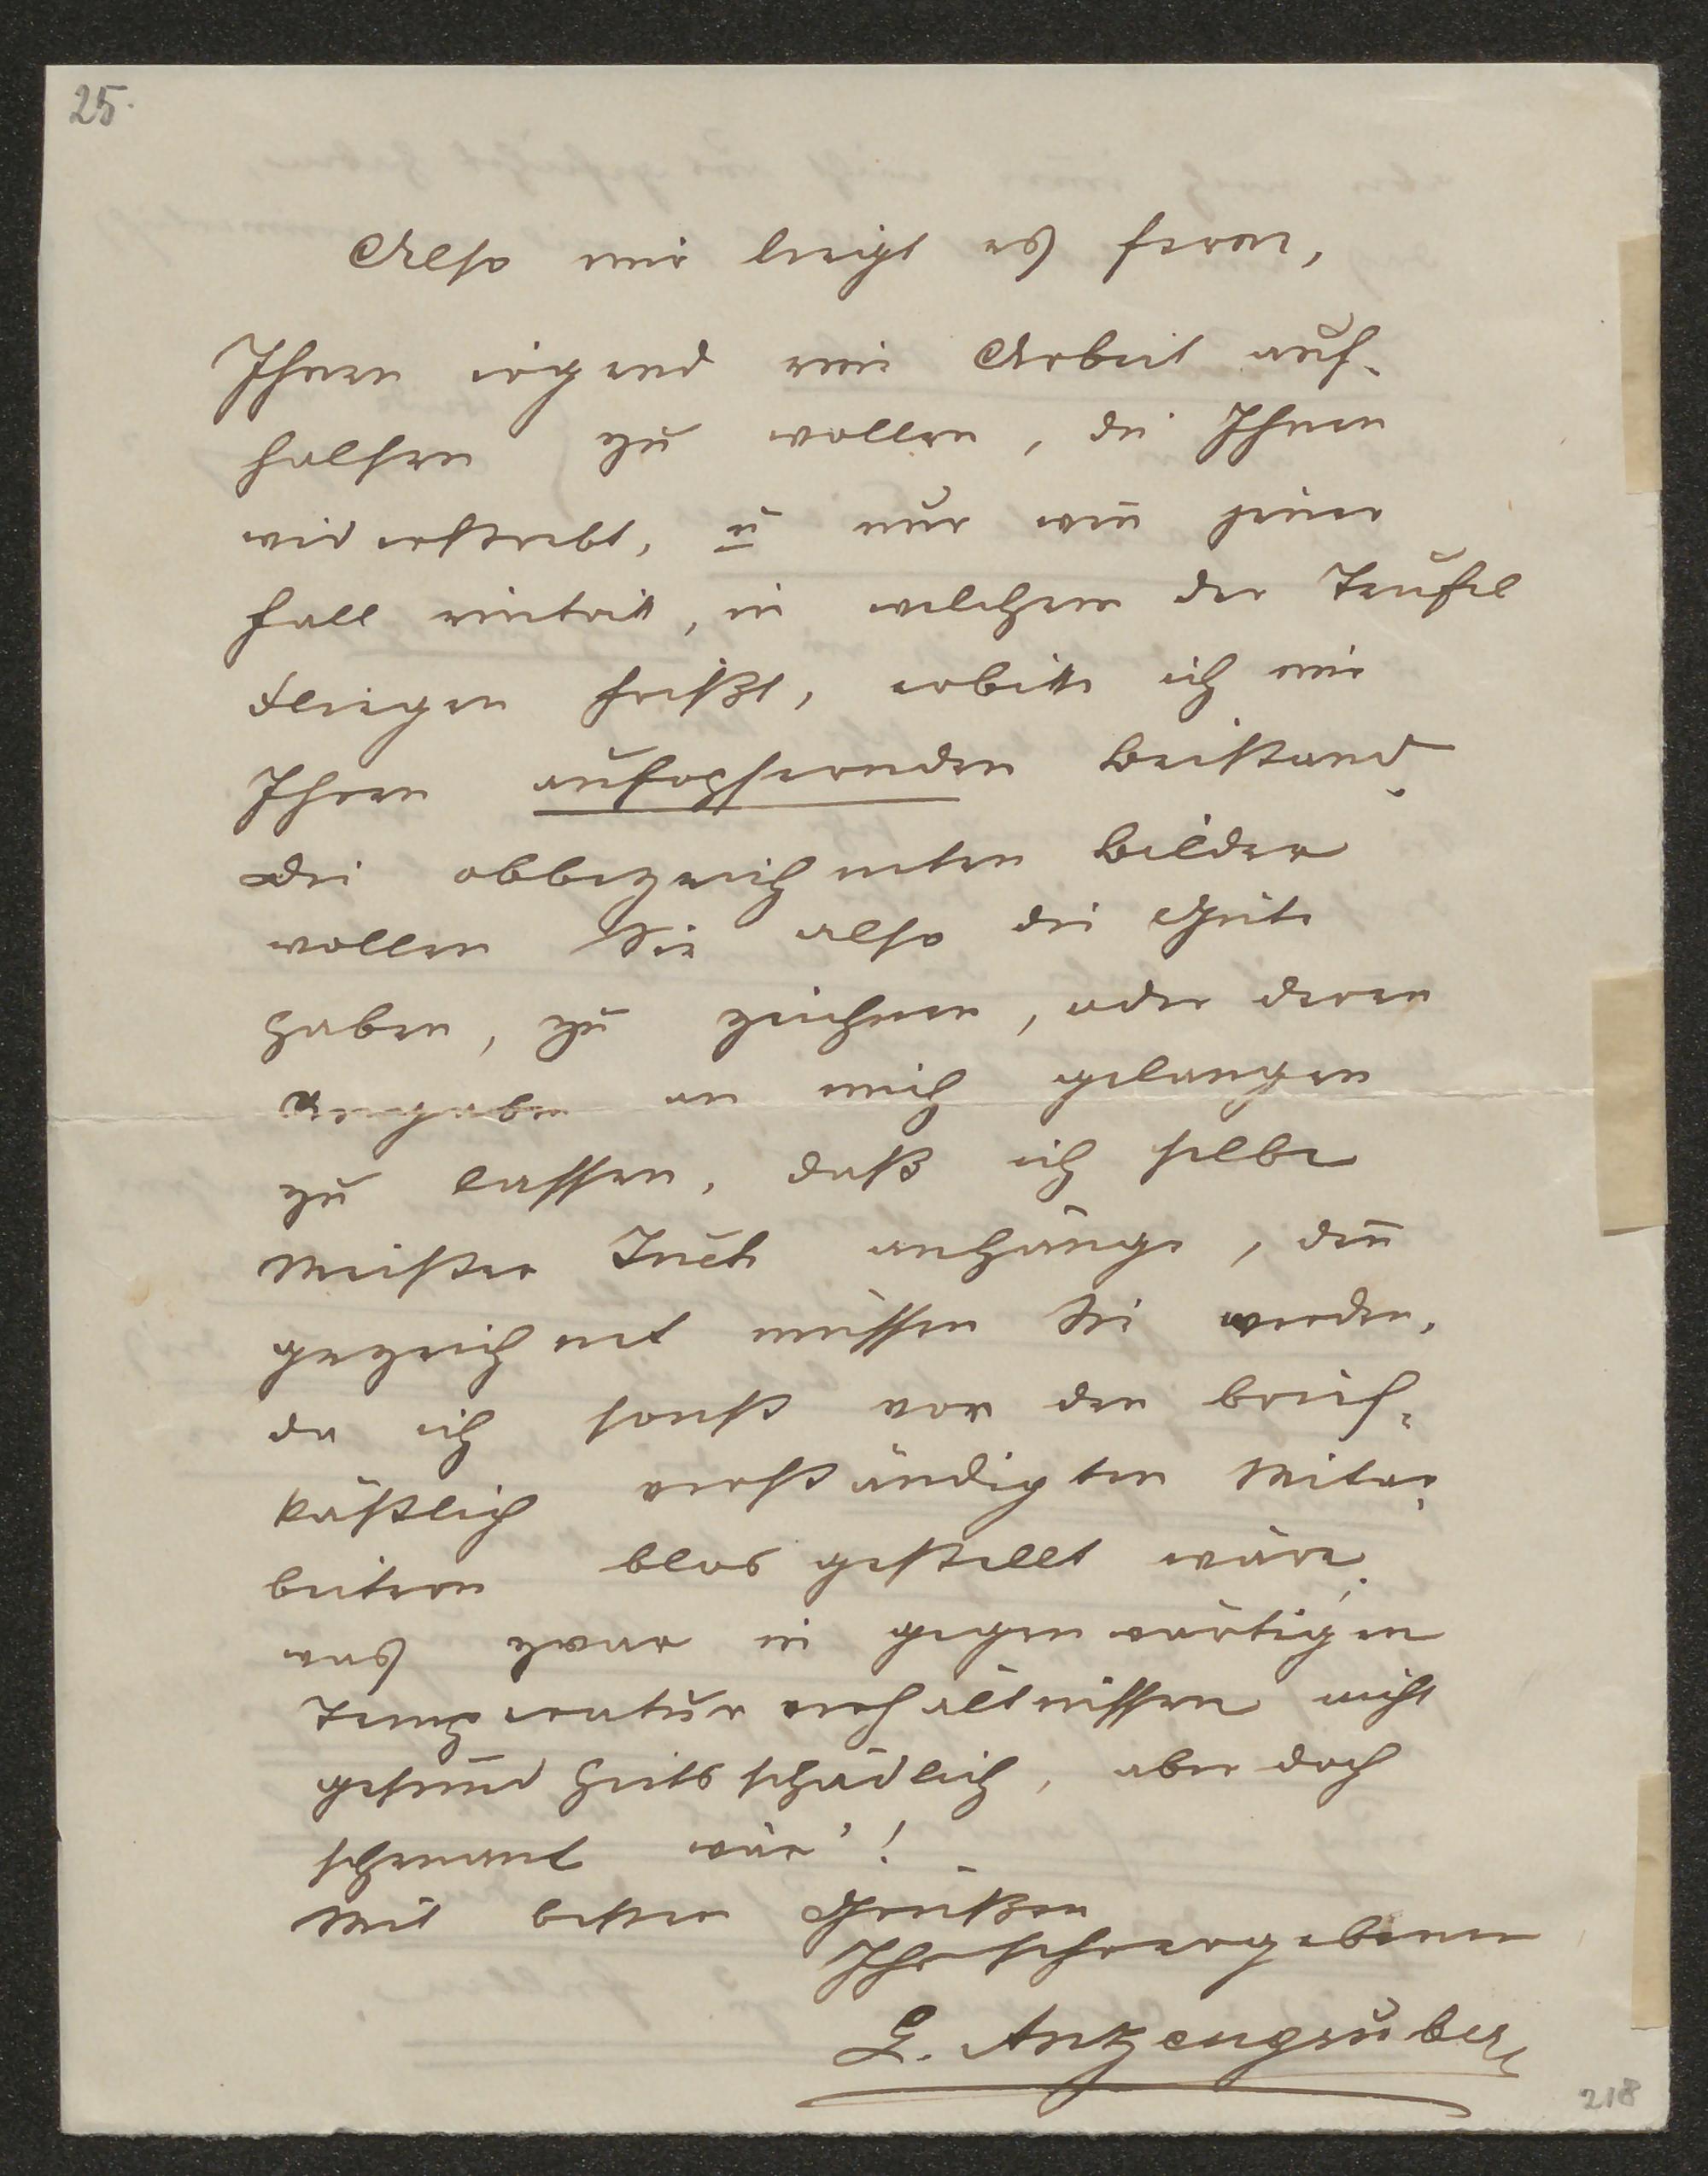 25.
Also mir liegt es ferne,
Ihnen irgend eine Arbeit auf-
halsen zu wollen, die Ihnen
widerstrebt, u nur wen̄ jener
Fall eintritt, in welchem der Teufel
Fliegen frißt, erbitte ich mir
Ihren aufopfernden Beistand.
Die obbezeichneten Bilder
wollen Sie also die Güte
haben, zu zeichnen, oder deren
Angaben an mich gelangen
zu lassen, daß ich selbe
Meister Juch anhänge, den̄
gezeichnet müssen Sie werden,
da ich sonst vor den brief-
kästlich verständigten Mitar-
beitern blos gestellt wäre,
was zwar in gegenwärtigen
Temperaturverhältnissen nicht
gesundheitsschädlich, aber doch
schenant wär'!
Mit besten Grüßen
Ihr sehr ergebener
L. Anzengruber
218